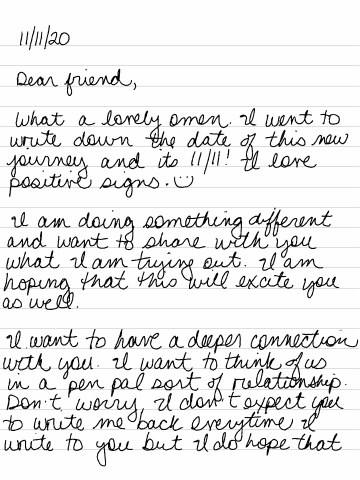 11/11/20
Dear friend,
What a lovely omen. I went to
write down the date of this new
journey and its 11/11! I love
positive signs.
I am doing something different
and want to share with you
what I am trying out. I am
hoping that this will excite you
as well.
I want to have a deeper connection
with you. I want to think of us
in a pen pal sort of relationship.
Don't worry I don't expect you
to write me back everytime I
write to you but I do hope that